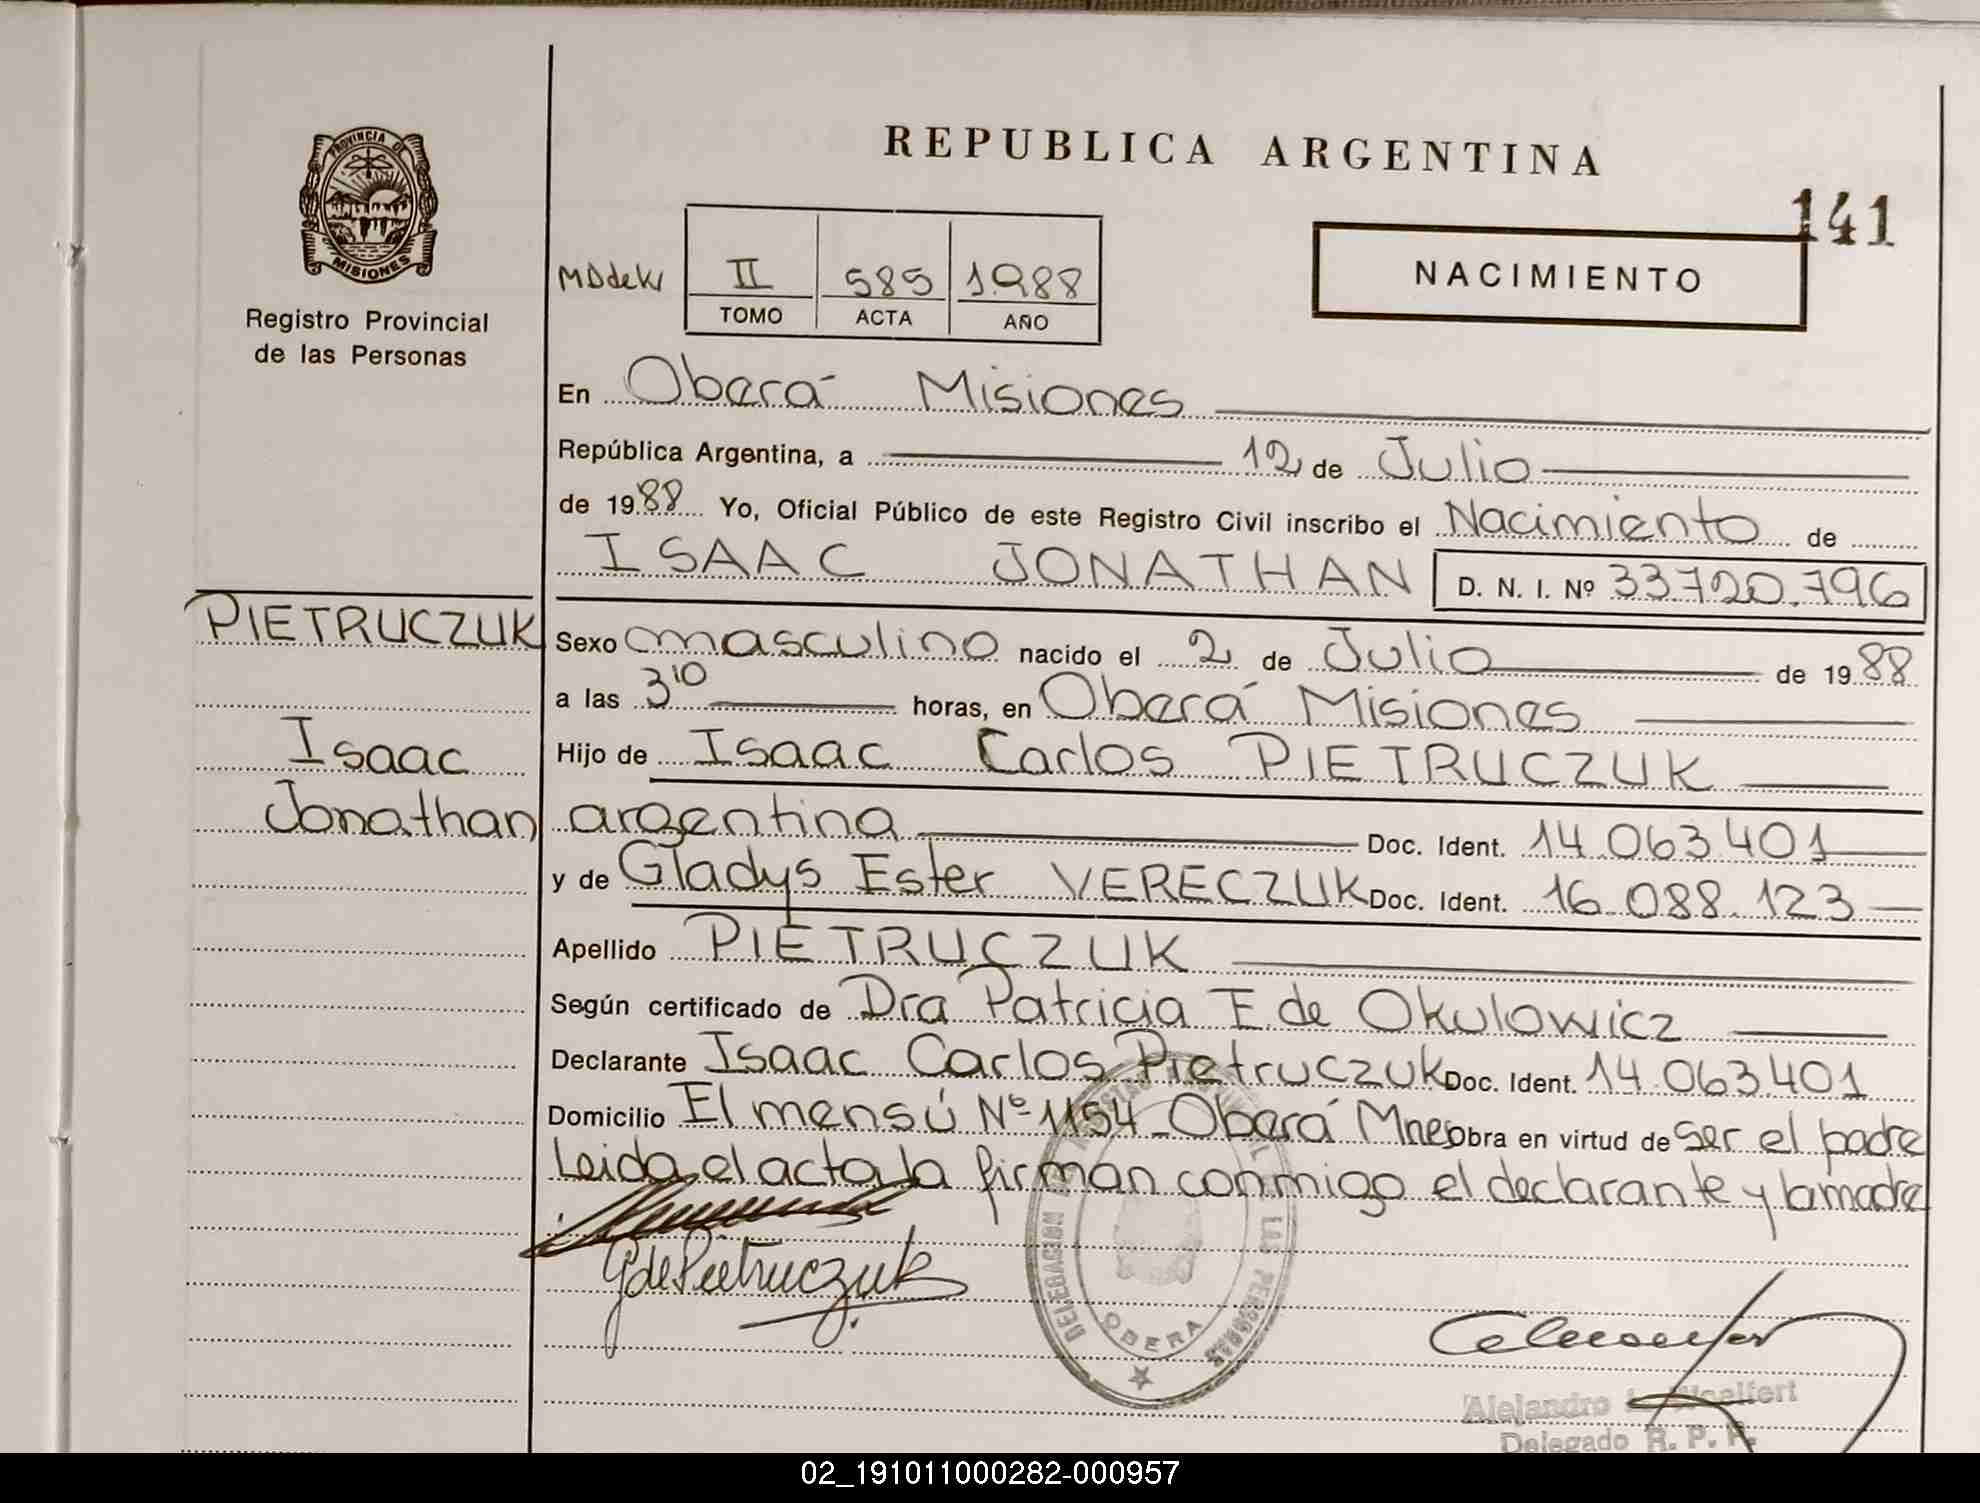 REPUBLICA ARGENTINA
141
PROVINCIA DE
MISIONES
Registro Provincial
de las Personas
II 585 1.988
TOMO ACTA AÑO
NACIMIENTO
En Oberá Misiones
República Argentina, a 12 de Julio
de 1988 Yo, Oficial Público de este Registro Civil inscribo el Nacimiento de
ISAAC JONATHAN D. N. I. Nº 33.720.796
PIETRUCZUK
Isaac
Jonathan
Sexo masculino nacido el 2 de Julio de 1988
a las 3¹⁰ horas, en Oberá Misiones
Hijo de Isaac Carlos PIETRUCZUK
argentina Doc. Ident. 14.063.401
y de Gladys Ester VERECZUK Doc. Ident. 16.088.123
Apellido PIETRUCZUK
Según certificado de Dra Patricia F. de Okulowicz
Declarante Isaac Carlos Pietruczuk Doc. Ident. 14.063.401
Domicilio El mensú Nº 1154 - Oberá Mnes Obra en virtud de ser el padre
Leida el acta la firman conmigo el declarante y la madre
G de Pietruczuk
DELEGACION LAS PERSONAS
OBERA
Alejandro
Delegado R. P. P.
02_191011000282-000957